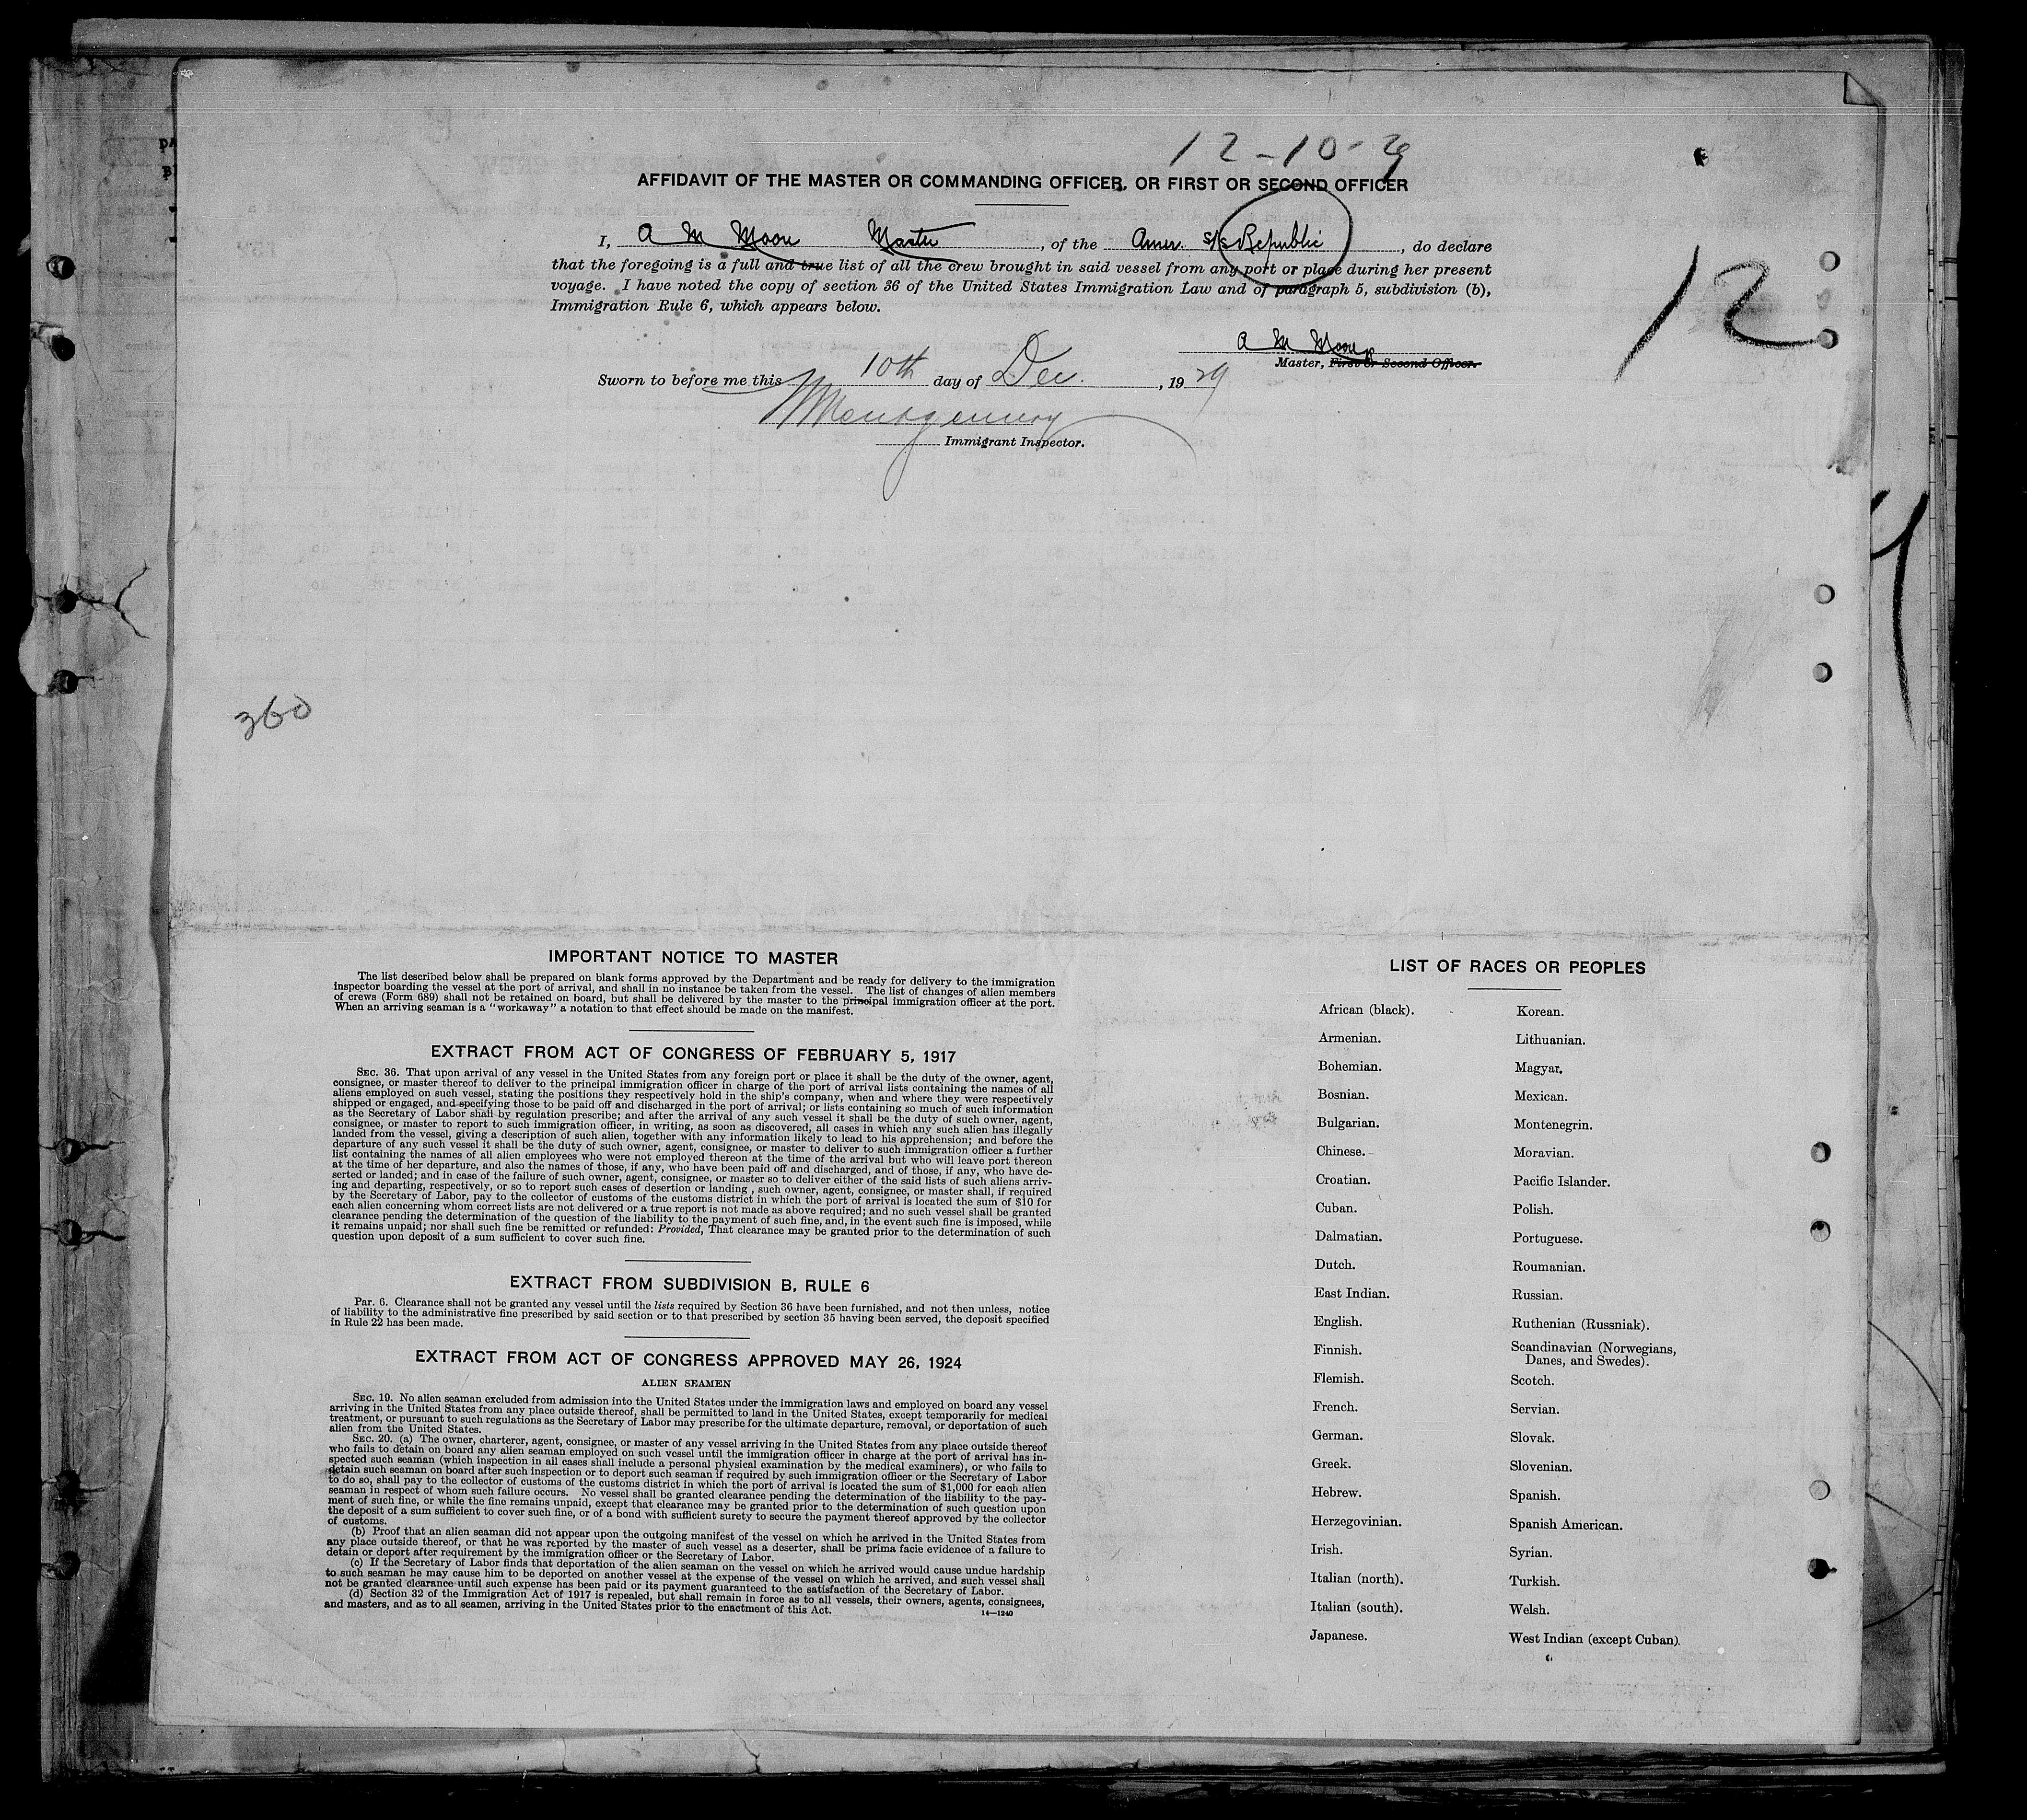 12-10-29
AFFIDAVIT OF THE MASTER OR COMMANDING OFFICER, OR FIRST OR SECOND OFFICER
I, A M Moore Master, of the Amer. S/S Republic, do declare
that the foregoing is a full and true list of all the crew brought in said vessel from any port or place during her present
voyage. I have noted the copy of section 36 of the United States Immigration Law and of paragraph 5, subdivision (b),
Immigration Rule 6, which appears below.
12
A M Moore
Master, First or Second Officer.
Sworn to before me this 10th day of Dec., 1929
Montgomery
Immigrant Inspector.
360
IMPORTANT NOTICE TO MASTER
The list described below shall be prepared on blank forms approved by the Department and be ready for delivery to the immigration
inspector boarding the vessel at the port of arrival, and shall in no instance be taken from the vessel. The list of changes of alien members
of crews (Form 689) shall not be retained on board, but shall be delivered by the master to the principal immigration officer at the port.
When an arriving seaman is a "workaway" a notation to that effect should be made on the manifest.
EXTRACT FROM ACT OF CONGRESS OF FEBRUARY 5, 1917
SEC. 36. That upon arrival of any vessel in the United States from any foreign port or place it shall be the duty of the owner, agent,
consignee, or master thereof to deliver to the principal immigration officer in charge of the port of arrival lists containing the names of all
aliens employed on such vessel, stating the positions they respectively hold in the ship's company, when and where they were respectively
shipped or engaged, and specifying those to be paid off and discharged in the port of arrival; or lists containing so much of such information
as the Secretary of Labor shall by regulation prescribe; and after the arrival of any such vessel it shall be the duty of such owner, agent,
consignee, or master to report to such immigration officer, in writing, as soon as discovered, all cases in which any such alien has illegally
landed from the vessel, giving a description of such alien, together with any information likely to lead to his apprehension; and before the
departure of any such vessel it shall be the duty of such owner, agent, consignee, or master to deliver to such immigration officer a further
list containing the names of all alien employees who were not employed thereon at the time of the arrival but who will leave port thereon
at the time of her departure, and also the names of those, if any, who have been paid off and discharged, and of those, if any, who have de-
serted or landed; and in case of the failure of such owner, agent, consignee, or master so to deliver either of the said lists of such aliens arriv-
ing and departing, respectively, or so to report such cases of desertion or landing, such owner, agent, consignee, or master shall, if required
by the Secretary of Labor, pay to the collector of customs of the customs district in which the port of arrival is located the sum of $10 for
each alien concerning whom correct lists are not delivered or a true report is not made as above required; and no such vessel shall be granted
clearance pending the determination of the question of the liability to the payment of such fine, and, in the event such fine is imposed, while
it remains unpaid; nor shall such fine be remitted or refunded: Provided, That clearance may be granted prior to the determination of such
question upon deposit of a sum sufficient to cover such fine.
EXTRACT FROM SUBDIVISION B, RULE 6
Par. 6. Clearance shall not be granted any vessel until the lists required by Section 36 have been furnished, and not then unless, notice
of liability to the administrative fine prescribed by said section or to that prescribed by section 35 having been served, the deposit specified
in Rule 22 has been made.
EXTRACT FROM ACT OF CONGRESS APPROVED MAY 26, 1924
ALIEN SEAMEN
SEC. 19. No alien seaman excluded from admission into the United States under the immigration laws and employed on board any vessel
arriving in the United States from any place outside thereof, shall be permitted to land in the United States, except temporarily for medical
treatment, or pursuant to such regulations as the Secretary of Labor may prescribe for the ultimate departure, removal, or deportation of such
alien from the United States.
SEC. 20. (a) The owner, charterer, agent, consignee, or master of any vessel arriving in the United States from any place outside thereof
who fails to detain on board any alien seaman employed on such vessel until the immigration officer in charge at the port of arrival has in-
spected such seaman (which inspection in all cases shall include a personal physical examination by the medical examiners), or who fails to
detain such seaman on board after such inspection or to deport such seaman if required by such immigration officer or the Secretary of Labor
to do so, shall pay to the collector of customs of the customs district in which the port of arrival is located the sum of $1,000 for each alien
seaman in respect of whom such failure occurs. No vessel shall be granted clearance pending the determination of the liability to the pay-
ment of such fine, or while the fine remains unpaid, except that clearance may be granted prior to the determination of such question upon
the deposit of a sum sufficient to cover such fine, or of a bond with sufficient surety to secure the payment thereof approved by the collector
of customs.
(b) Proof that an alien seaman did not appear upon the outgoing manifest of the vessel on which he arrived in the United States from
any place outside thereof, or that he was reported by the master of such vessel as a deserter, shall be prima facie evidence of a failure to
detain or deport after requirement by the immigration officer or the Secretary of Labor.
(c) If the Secretary of Labor finds that deportation of the alien seaman on the vessel on which he arrived would cause undue hardship
to such seaman he may cause him to be deported on another vessel at the expense of the vessel on which he arrived, and such vessel shall
not be granted clearance until such expense has been paid or its payment guaranteed to the satisfaction of the Secretary of Labor.
(d) Section 32 of the Immigration Act of 1917 is repealed, but shall remain in force as to all vessels, their owners, agents, consignees,
and masters, and as to all seamen, arriving in the United States prior to the enactment of this Act.
14—1240
LIST OF RACES OR PEOPLES
African (black).
Armenian.
Bohemian.
Bosnian.
Bulgarian.
Chinese.
Croatian.
Cuban.
Dalmatian.
Dutch.
East Indian.
English.
Finnish.
Flemish.
French.
German.
Greek.
Hebrew.
Herzegovinian.
Irish.
Italian (north).
Italian (south).
Japanese.
Korean.
Lithuanian.
Magyar.
Mexican.
Montenegrin.
Moravian.
Pacific Islander.
Polish.
Portuguese.
Roumanian.
Russian.
Ruthenian (Russniak).
Scandinavian (Norwegians,
Danes, and Swedes).
Scotch.
Servian.
Slovak.
Slovenian.
Spanish.
Spanish American.
Syrian.
Turkish.
Welsh.
West Indian (except Cuban).